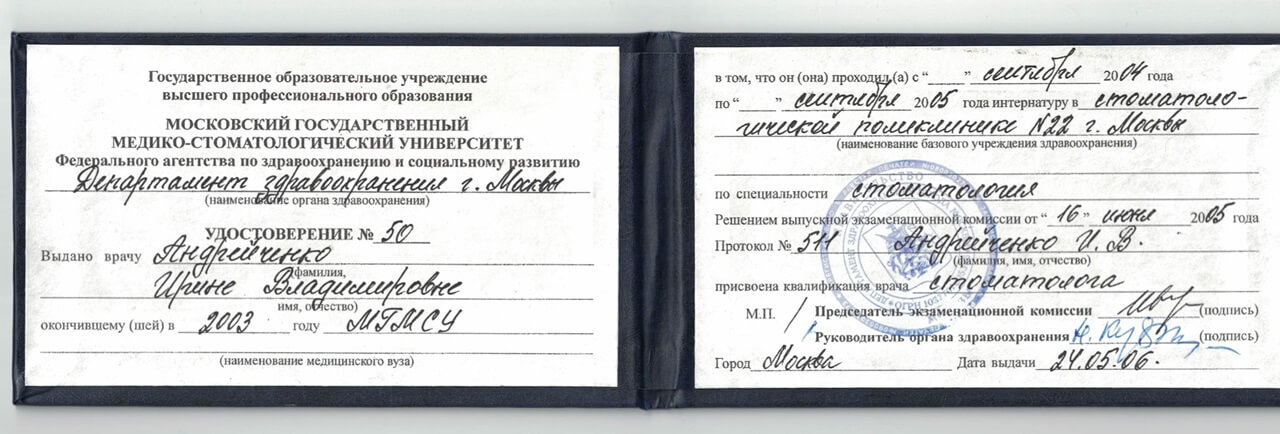 Государственное образовательное учреждение
высшего профессионального образования
МОСКОВСКИЙ ГОСУДАРСТВЕННЫЙ
МЕДИКО-СТОМАТОЛОГИЧЕСКИЙ УНИВЕРСИТЕТ
Федерального агентства по здравоохранению и социальному развитию
Департамент здравоохранения г. Москвы
(наименование органа здравоохранения)
УДОСТОВЕРЕНИЕ № 50
Выдано врачу Андрейченко
фамилия,
Ирине Владимировне
имя, отчество)
окончившему (шей) в 2003 году МГМСУ
(наименование медицинского вуза)
в том, что он (она) проходил (а) с “ ” сентября 2004 года
по “ ” сентября 2005 года интернатуру в стоматоло-
гической поликлинике N22 г. Москвы
(наименование базового учреждения здравоохранения)
по специальности стоматология
Решением выпускной экзаменационной комиссии от “ 16 ” июня 2005 года
Протокол № 511 Андрейченко И. В.
(фамилия, имя, отчество)
присвоена квалификация врача стоматолога
М.П. Председатель экзаменационной комиссии (подпись)
Руководитель органа здравоохранения (подпись)
Город Москва Дата выдачи 24.05.06.